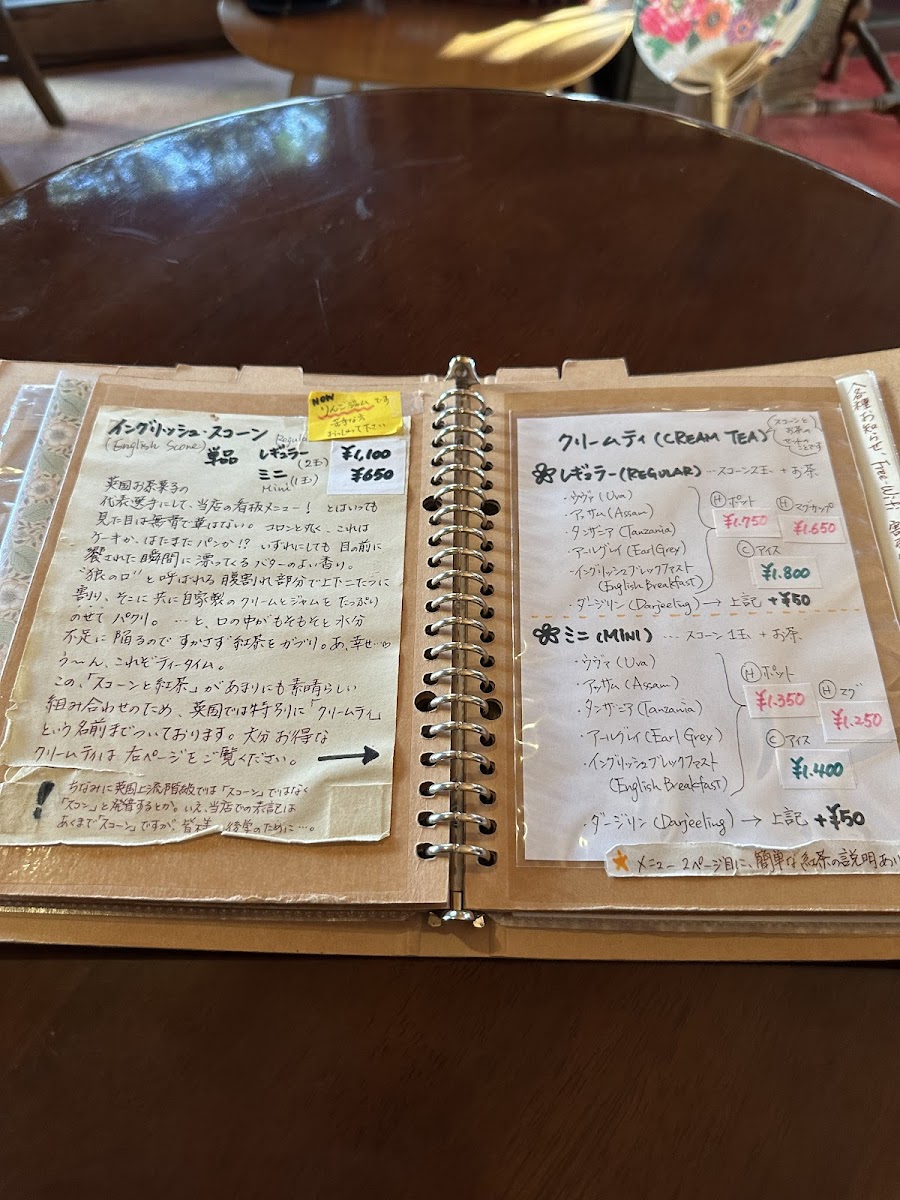 NOW
りんごジャムです
苦手な方
おっしゃって下さい
イングリッシュ・スコーン
(English Scone)
単品
Regular
レギュラー(2玉) ¥1,100
ミニ(1玉) ¥650
Mini
英国お茶菓子の
代表選手にして、当店の看板メニュー! とはいっても
見た目は無骨で華はない。コロンと丸く これは
ケーキか、はたまたパンか!? いずれにしても 目の前に
饗された瞬間に漂ってくるバターのよい香り。
"狼の口"と呼ばれる腹割れ部分で上下二たつに
割り、そこに共に自家製のクリームとジャムを たっぷり
のせて パクリ。 …と、口の中がもそもそと水分
不足に陥るので すかさず紅茶をガブリ。あ、幸せ…
う〜ん、これぞティータイム。
この、「スコーンと紅茶」があまりにも素晴らしい
組み合わせのため、英国では特別に「クリームティ」
という名前までついております。大分お得な
クリームティは 右ページをご覧ください。 →
! ちなみに英国上流階級では「スコーン」ではなく
「スコン」と発音するとか。いえ、当店での表記は
あくまで「スコーン」ですが、皆様の修学のために…。
クリームティ(CREAM TEA)
スコーンと
お茶の
セットの
ことです
レギュラー(REGULAR) …スコーン2玉 + お茶
・ウヴァ(Uva)
・アッサム(Assam)
・タンザニア(Tanzania)
・アールグレイ(Earl Grey)
・イングリッシュブレックファスト
(English Breakfast)
Ⓗポット ¥1.750
Ⓗマグカップ ¥1.650
Ⓒアイス ¥1.800
・ダージリン(Darjeeling) → 上記 +¥50
ミニ(MINI) … スコーン1玉 + お茶
・ウヴァ(Uva)
・アッサム(Assam)
・タンザニア(Tanzania)
・アールグレイ(Earl Grey)
・イングリッシュブレックファスト
(English Breakfast)
Ⓗポット ¥1.350
Ⓗマグ ¥1.250
Ⓒアイス ¥1.400
・ダージリン(Darjeeling) → 上記 +¥50
★ メニュー2ページ目に、簡単な紅茶の説明あり
各種お知らせ、Free Wi-Fi